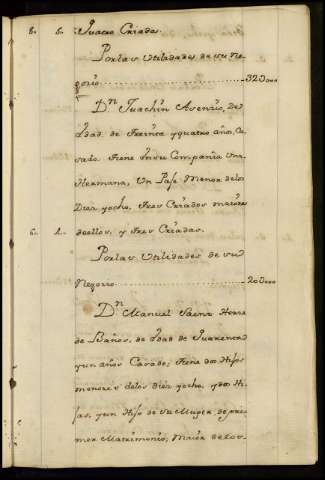 8. 5. Quatro Criadas.
Por las Utilidades de su Ne-
gocio 32000
Dn. Juachin Asensio, De
Edad de Treinta y quatro años, Ca-
sado. Tiene en su Compañia Una
Hermana, Un Paje Menor de los
Diez y ocho, Tres Criados maiores
de ellos, y Tres Criadas.
6. 4.
Por las Utilidades de su
Negocio 20000
Dn. Manuel Saenz
de Baños, de Edad de Quarenta
y un años Casado; tiene dos Hijos
menores de los diez y ocho, y dos Hi-
jas, y un Hijo de su Muger de pri-
mer Matrimonio, Maior de los